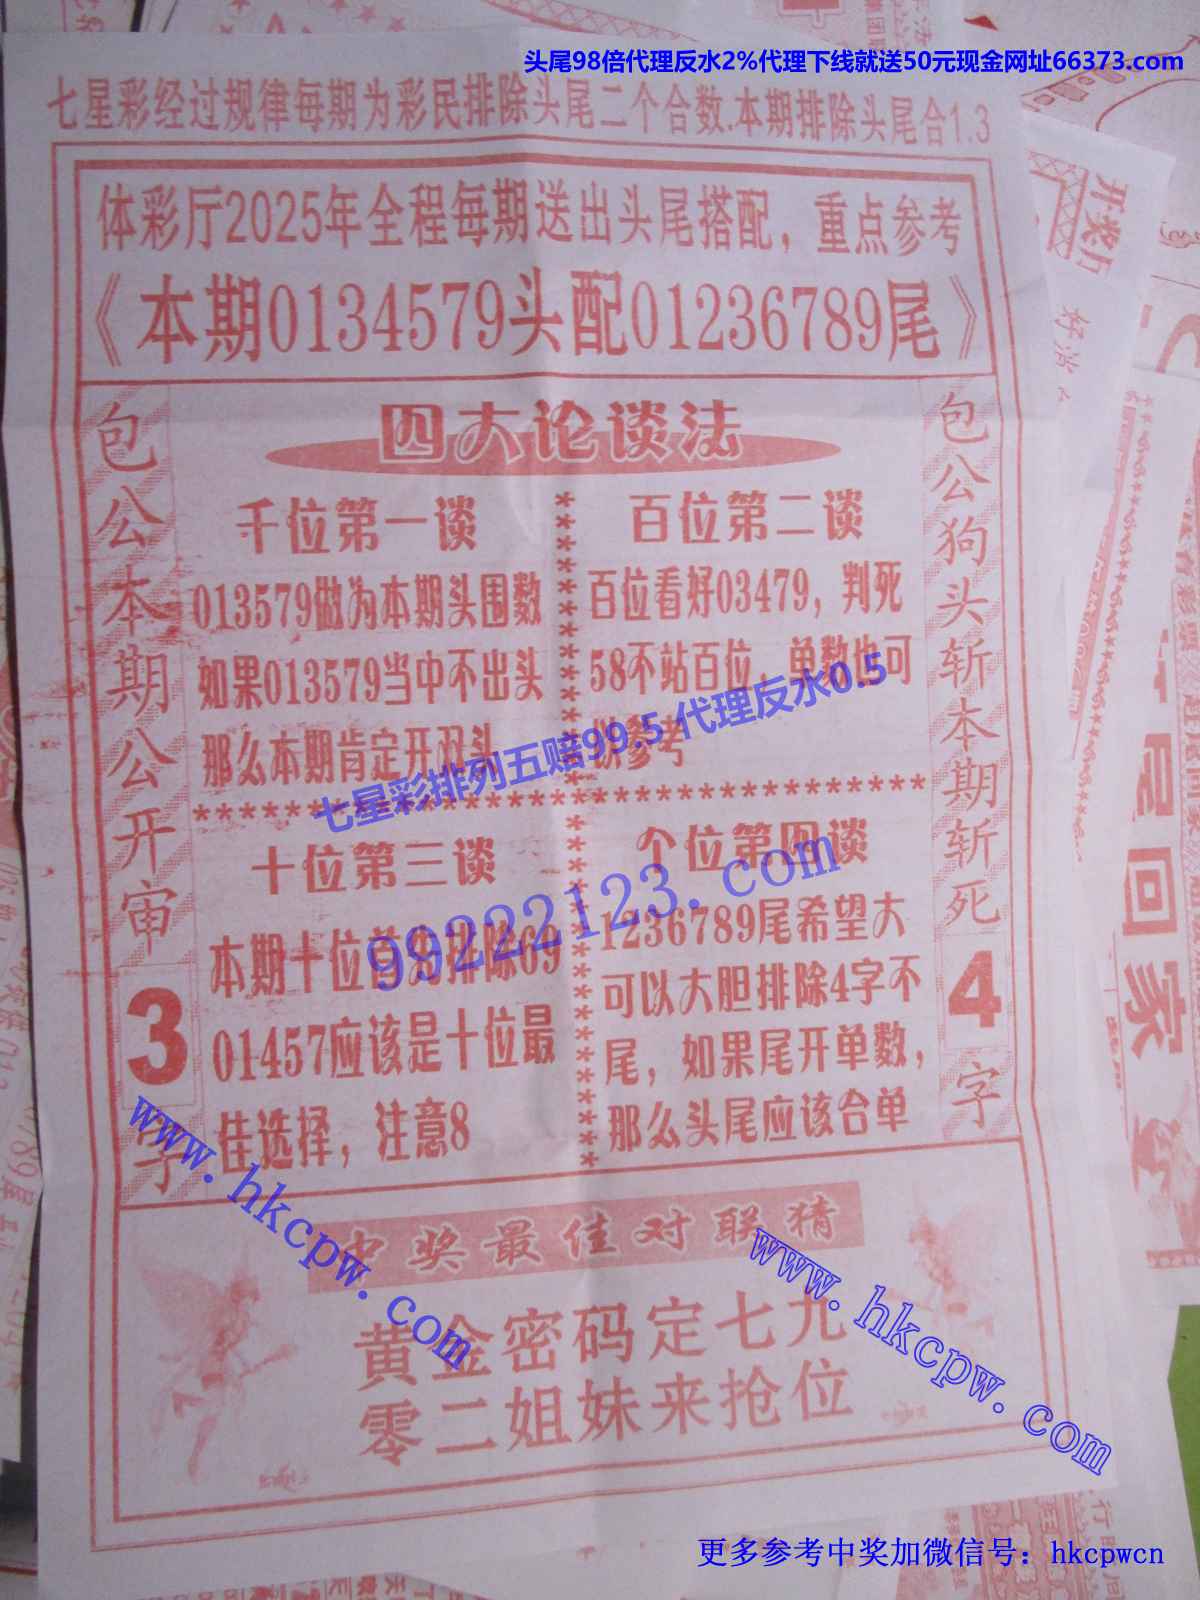 头尾98倍代理反水2%代理下线就送50元现金网址66373.com
七星彩经过规律每期为彩民排除头尾二个合数.本期排除头尾合1.3
体彩厅2025年全程每期送出头尾搭配，重点参考
《本期0134579头配01236789尾》
包公本期公开审3字
四大论谈法
千位第一谈
013579做为本期头围数
如果013579当中不出头
那么本期肯定开双头
百位第二谈
百位看好03479，判死
58不站百位，单数也可
做参考
十位第三谈
本期十位首先排除69
01457应该是十位最
佳选择，注意8
个位第四谈
1236789尾希望大
可以大胆排除4字不
尾，如果尾开单数，
那么头尾应该合单
包公狗头斩本期斩死4字
中奖最佳对联猜
黄金密码定七九
零二姐妹来抢位
七星彩排列五赔99.5 代理反水0.5
99222123.com
www.hkcpw.com
www.hkcpw.com
更多参考中奖加微信号：hkcpwcn
开奖
好消
回家